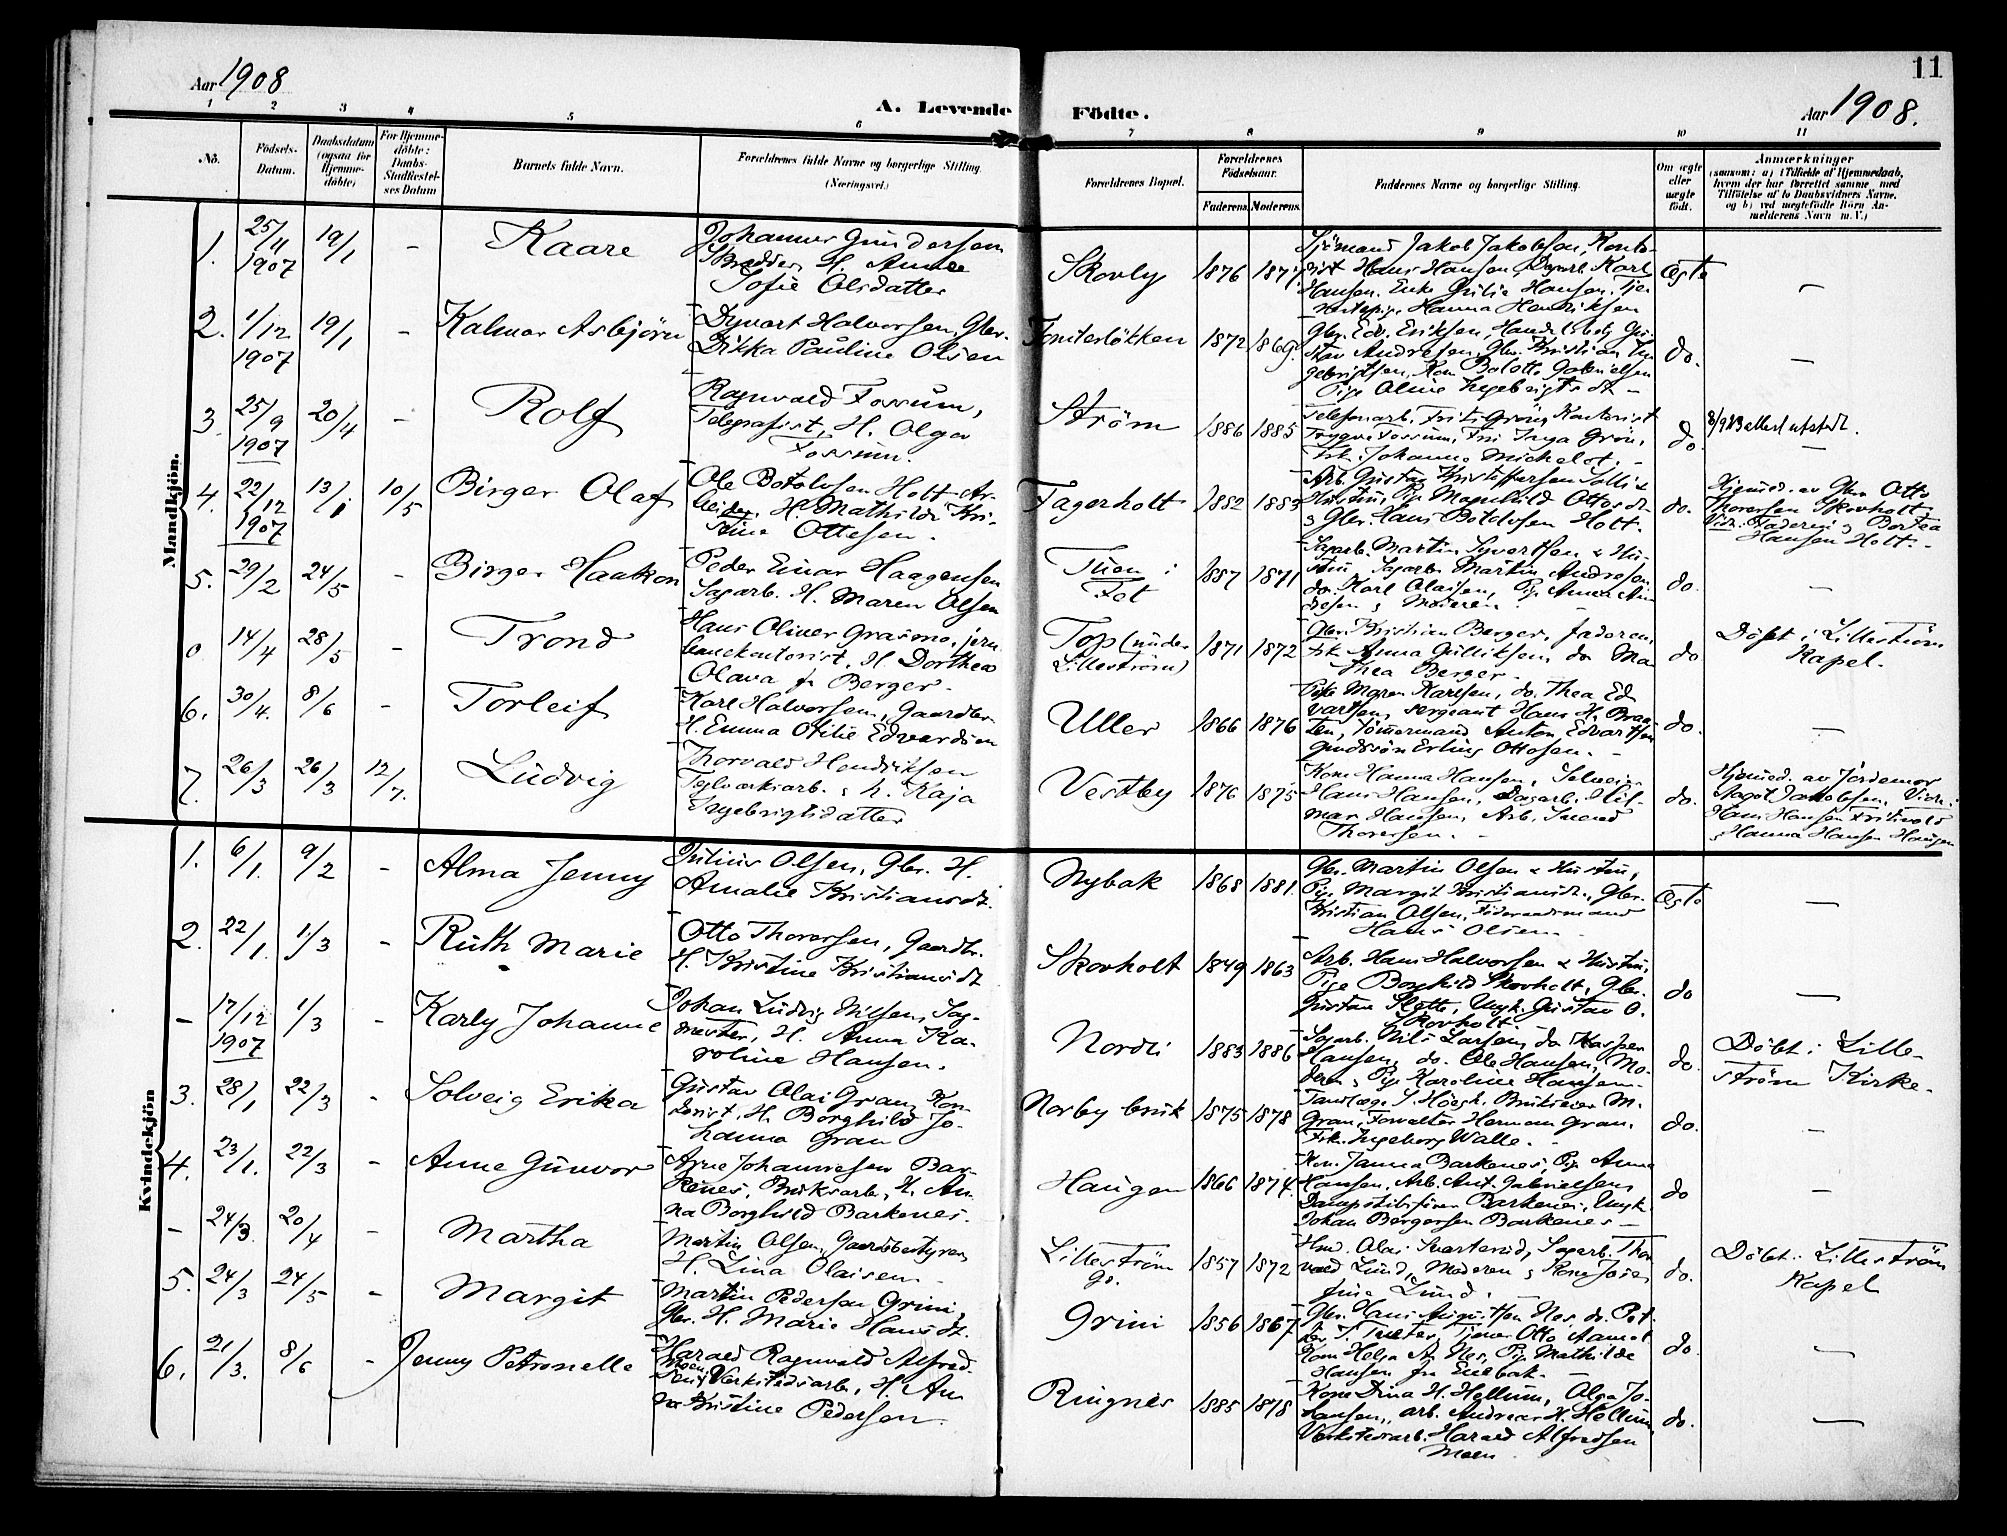 11
Aar 1908
A. Levende Födte.
Aar 1908.
1 2 3 4 5 6 7 8 9 10 11
No.
Födsels-Datum.
Daabsdatum (ogsaa for Hjemme-döbte)
For Hjemme-döbte: Daabs-Stadfæstel-ses Datum
Barnets fulde Navn.
Forældrenes fulde Navne og borgerlige Stilling (Næringsvei.)
Forældrenes Bopæl.
Forældrenes Födselsaar.
Faderens. Moderens.
Faddernes Navne og borgerlige Stilling.
Om ægte eller uægte födt.
Anmærkninger
(saasom: a) i Tilfælde af Hjemmedaab,
hvem der har forrettet samme med
Tilföielse af to Daabsvidners Navne,
og b) ved uægtefödte Börn An-
melderens Navn m. V.)
Mandkjön.
1. 25/11 1907 19/1 -
Kaare
Johannes Gundersen
Bredder H. Anne
Sofie Olsdatter
Skovly 1876 1877
Sjömand Jakob Jakobsen, Konto-
rist Hans Hansen, Dagarb. Karl
Hansen. Enke Julie Hansen. Tje-
nestepige Hanna Henriksen
Ægte
-
2. 1/12 1907 19/1 -
Kalmar Asbjörn
Dyvart Halvorsen, Gbr.
Dikka Pauline Olsen
Tomterlökken 1872 1869.
Gbr. Edv. Eriksen, Handelsbetj. Gu-
stav Andresen, Gbr. Kristian In-
gebrigtsen, Kone Bolette Gabrielsen
Pige Oline Ingebrigtsdt -
do.
-
3. 25/9 1907 20/4 -
Rolf
Ragnvald Fossum,
Telegrafist, H. Olga
Fossum.
Ström 1886 1885
Telefonarb. Fritz Grön, Kontorist
Trygve Fossum, Fru Inga Grön,
Frk. Johanne Michelet. -
do.
-
4. 22/12 1907 13/1 10/5
Birger Olaf
Ole Botolvsen Holt Ar-
beider, H. Mathilde Kri-
stine Ottesen.
Fagerholt 1882 1883
Arb. Gustav Kristoffersen Sollie &
Hustru, Pige Magnhild Ottosdt
& Gbr. Hans Botolvsen Holt.
do.
Hjemmed. av Gbr. Otto
Thoresen Skovholt
Vidn. Faderen & Bertea
Hansen Holt. -
5. 29/2 24/5 -
Birger Haakon
Peder Einar Haagensen
Sagarb. H. Maren Olsen
Tuen i
Fet 1887 1871
Sagarb. Martin Syvertsen & Hu-
stru, Sagarb. Martin Andresen
do. Karl Olaisen, Pige Anna An-
dresen & Moderen.
do.
-
0 14/4 28/5 -
Trond
Hans Oliver Grasmo, jern-
banekontorist. H. Dorthea
Olava f. Berger.
Top (under
Lilleström) 1871 1872
Gbr. Kristian Berger, faderen,
Frk. Anna Gulliksen, do Ma-
thea Berger.
do
Döbt i Lilleström
Kapel.
6. 30/4. 8/6 -
Torleif
Karl Halvorsen, Gaardbr.
H. Emma Otilie Edvardsen
Uller 1866 1876
Pige Maren Karlsen, do. Thea Ed-
vartsen, sergeant Hans H. Braa-
ten, Tömmermand Anton Edvartsen
gundssön Erling Ottosen. -
do.
-
7. 26/3 26/3 12/7.
Ludvig
Thorvald Hendriksen
Teglverksarb. & h. Kaja
Ingebrigtsdatter
Vestby 1876 1875
Kone Hanna Hansen, Selveier
Hans Hansen, Dagarb. Hil-
mar Hansen, Arb. Svend
Thoresen. -
do.
Hjemmed. av Jordemor
Aagot Jakobsen. Vidn.:
Hans Hansen
& Hanna Hansen Haugen
Kvindekjön
1. 6/1. 9/2 -
Alma Jenny
Julius Olsen, Gbr. H.
Amalie Kristiansdt.
Nybak 1868 1881.
Gbr. Martin Olsen & Hustru,
Pige Margit Kristiansdt., Gbr.
Kristian Olsen, Föderaadsmand
Hans Olsen -
Ægte
-
2. 22/1. 1/3 -
Ruth Marie
Otto Thoresen, Gaardbr.
H. Kristine Kristiansdt
Skovholt 1849 1863
Arb. Hans Halvorsen & Hustru,
Pige Borghild Skovholt, Gbr.
Gustav Slette, Ungk. Gustav O.
Skovholt.
do
-
- 17/12 1907 1/3 -
Karly Johanne
Johan Ludvig Nilsen, Sag-
mester, H. Anna Ka-
roline Hansen.
Nordli 1883 1886
Sagarb. Nils Larsen, do Kasper
Hansen, do. Ole Hansen, Mo-
deren & Pige Karoline Hansen.
do.
Döbt i Lille-
ström Kirke.
3. 28/1 22/3 -
Solveig Erika
Gustav Olai Gran, Kon-
torist, H. Borghild Jo-
hanna Gran
Norby bruk 1875 1878
Tandlæge S. Höegh. Brukseier M.
Gran, Forvalter Herman Gran,
Frk. Ingeborg Walle. -
do.
-
4. 23/1. 22/3 -
Anne Gunvor
Arne Johannesen Bar-
kenes, Bruksarb., H. An-
na Borghild Barkenes.
Haugen 1866 1874.
Kone Janna Barkenes, Pige Anne
Hansen, Arb. Ant. Gabrielsen,
Barkenes, Ungk.
Johan Bergersen Barkenes -
do
-
- 24/3. 20/4 -
Martha
Martin Olsen, Gaardsbestyrer,
H. Lina Olaisen -
Lilleström
Gd. 1857 1872
Hmd. Olai Svarterud, Sagarb. Thor-
vald Lund, Moderen & Kone Jose-
fine Lund. -
do.
Döbt i Lilleström
Kapel
5. 24/3 24/5 -
Margit
Martin Pedersen Grini,
Gbr. H. Marie Hansdt.
Grini 1856 1867
Gbr. Hans Augustsen Nes, do. Pet-
ter T. Tueter, Tjener Otto Aamot
Kone Helga A. Nes, Pige Mathilde
Hansen fra Enebak. -
do.
-
6. 21/3. 8/6 -
Jenny Petronelle
Harald Ragnvald Alfred-
sen Moen, Verkstedsarb., H. An-
na Kristine Pedersen.
Ringnes 1885 1878
Kone Dina H. Hellum, Olga Jo-
hansen, arb. Andreas H. Hellum,
Verkstedsarb. Harald Alfredsen
Moen
do.
-